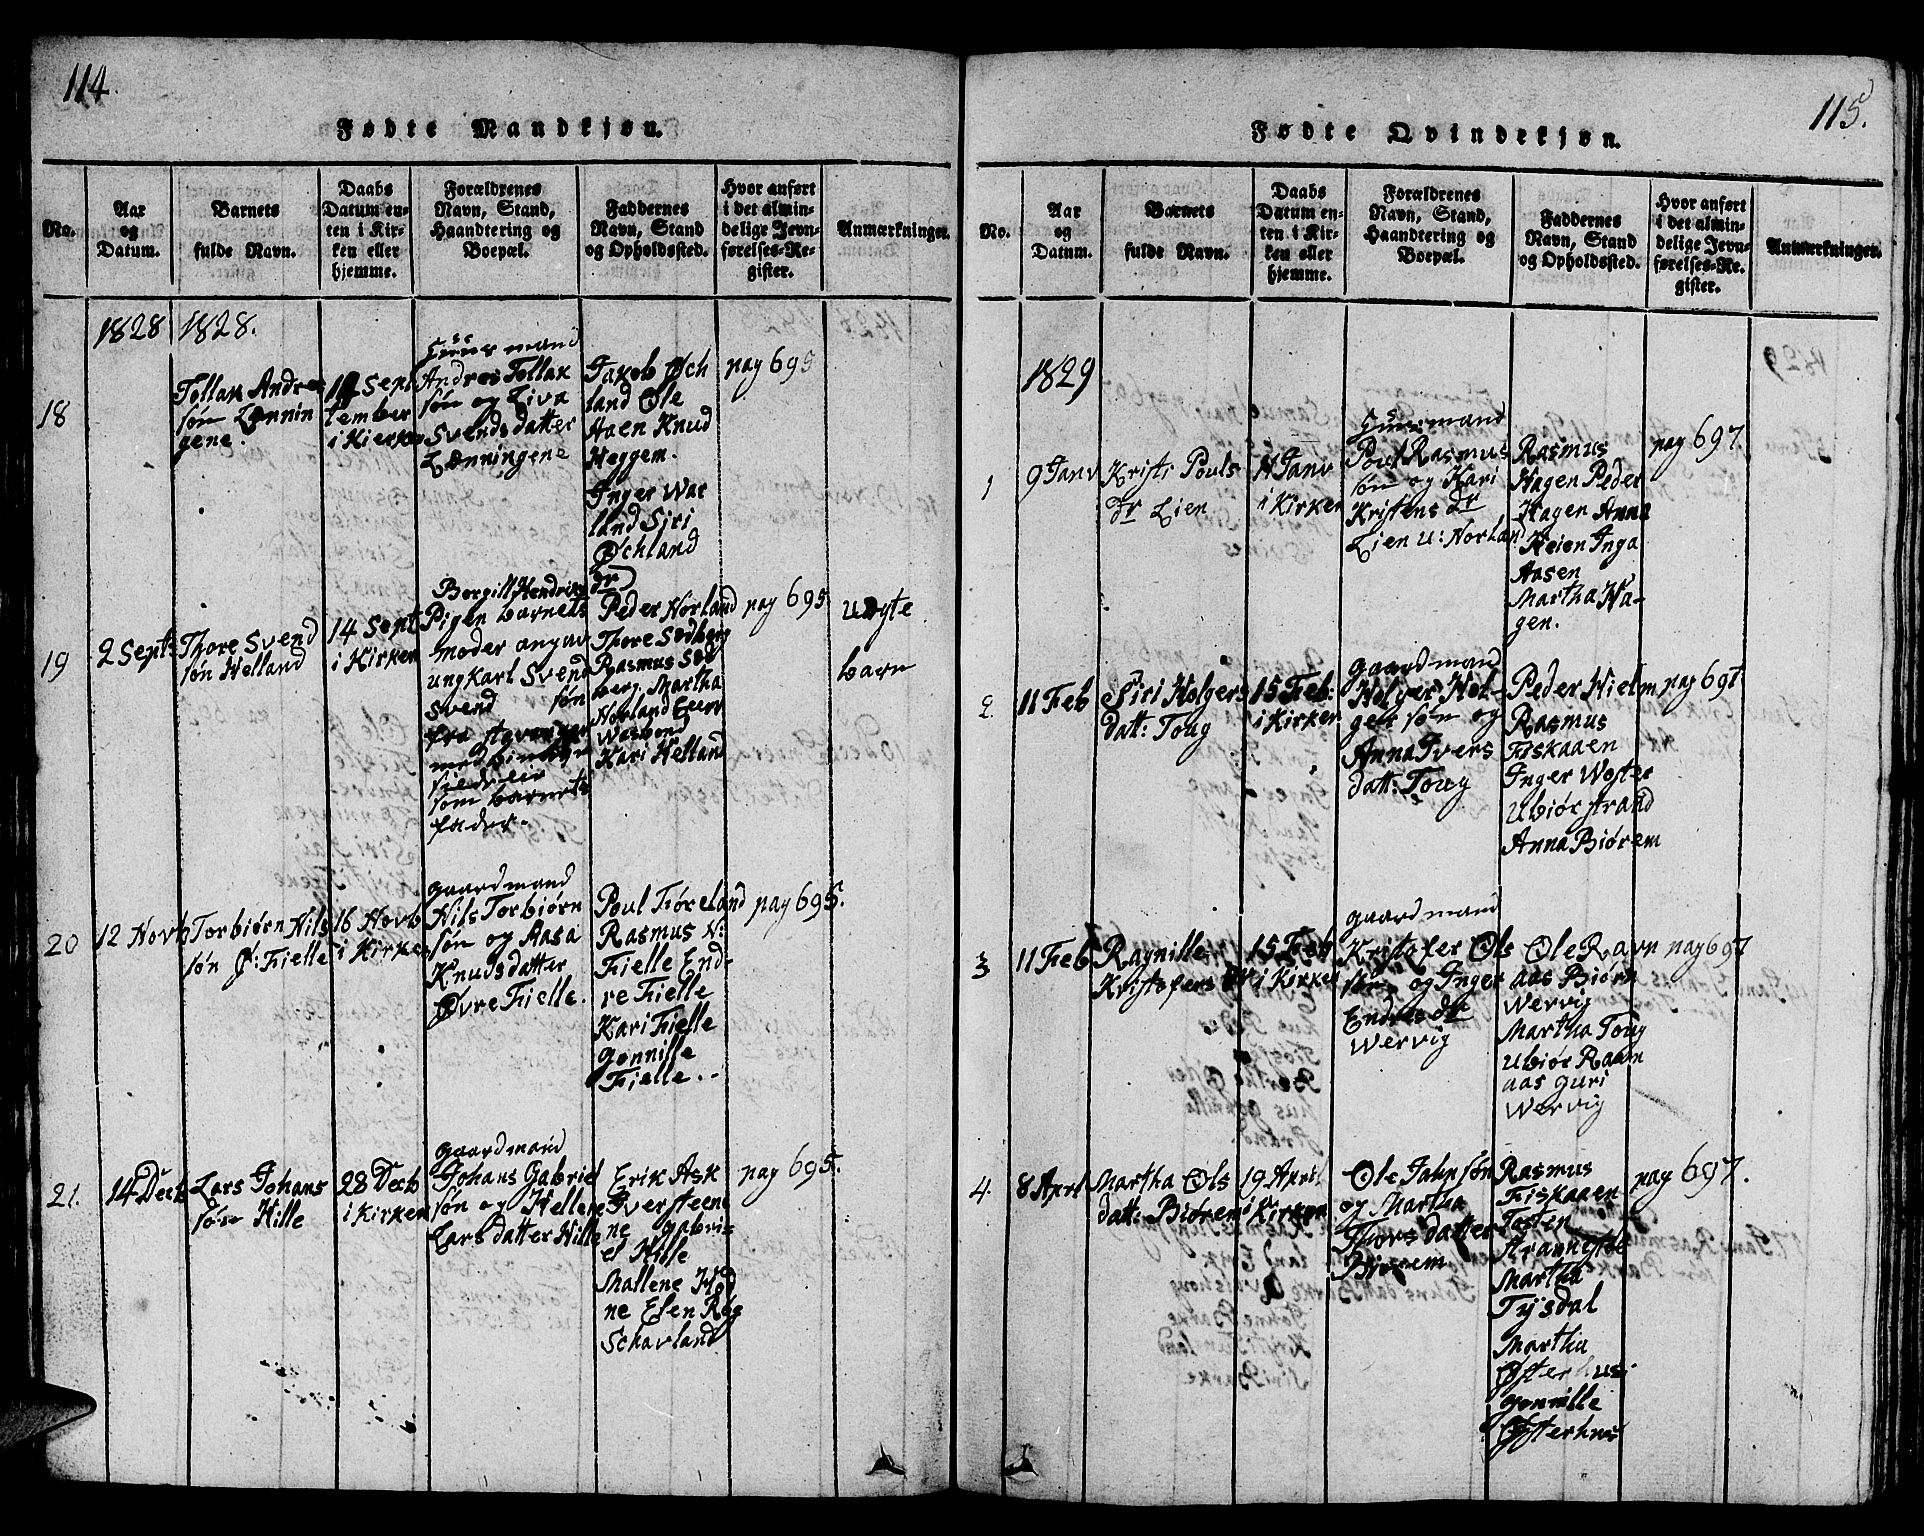 114.
Fødte Mandkjøn.
No.
Aar
og
Datum.
Barnets
fulde Navn.
Daabs
Datum en-
ten i Kir-
ken eller
hjemme.
Forældrenes
Navn, Stand,
Haandtering og
Boepæl.
Faddernes
Navn, Stand
og Opholdssted.
Hvor anført
i det almin-
delige Jevn-
førelses-Re-
gister.
Anmærkninger.
1828
1828.
18
Tollak Andres
søn Lønnin
gene.
14 Sept
tember
i Kierken
Huusmand
Andres Tollak
søn og Liva
Svendsdatter
Lønningene
Jakob Øch
land Ole
Aaen Knud
Heggem.
Inger War
land Siri
Øchland
pag 695
19
2 Sept:
Thore Svend
søn Helland
14 Sept
i Kirken
Borgill Hendriks dr
Pigen barnets
moder angav
ungkarl Svend
Svend søn
fra stavanger
som barnets
fader.
Peder Norland
Thore Sødberg
Rasmus Sød
berg. Martha
Norland
Kari Helland
pag 695
u ægte
barn
20
12 Novb
Torbiørn Nils
søn Ø: Fielle
16 Novb
i Kirken
gaardmand
Nils Torbiørn
søn og Aasa
Knudsdatter
Øvre Fielle.
Poul Tiøreland
Rasmus N:
Fielle End-
re Fielle
Kari Fielle
gonnille
Fielle.
pag 695.
21.
14 Decb
Lars Johans
søn Hille
28 Decb
i Kirken
gaardmand
Johans Gabriel
søn og Hellene
Lars datter Hille
Erik Ask
Iver steene
ne gabri-
el Hille
Mallene Hød
ne Elen Røg
Schavland
pag 695.
115.
Fødte Qvindekjøn.
No.
Aar
og
Datum.
Barnets
fulde Navn.
Daabs
Datum en-
ten i Kir-
ken eller
hjemme.
Forældrenes
Navn, Stand,
Haandtering og
Boepæl.
Faddernes
Navn, Stand
og Opholdssted.
Hvor anført
i det almin-
delige Jevn-
førelses-Re-
gister.
Anmærkninger.
1829
1
9 Janv
Kristi Pouls
dr Lien
11 Janv
i Kirken
Huusmand
Poul Rasmus
søn og Kari
Kristens dr
Lien u: Norland
Rasmus
Hagen Peder
Hagen Anna
Heien Inga
Aasen
Martha Ha-
gen.
pag 697.
2.
11 Feb
Siri Holgers
datt: Toug
15 Feb:
i Kirken
gaardmand
Holger Hol-
ger søn og
Anna Ivers
datt: Toug
Peder Hielm
Rasmus
Fiskaaen
Inger Woster
Ubiør strand
Anna Biørem
pag 697
3
11 Feb
Ragnille
Kristofers dr
15 Feb
i Kirken
gaardmand
Kristofer Ols
søn og Inger
Endres dr
Wervig
Ole Ravn
aas Biørn
Wervig
Martha Toug
Ubiør Ravn
aas guri
Wervig
pag 697
4.
8 Aprl
Martha Ols
datt: Biørem
19 April
i Kirken
Ole Jahnsøn
og Martha
Thorsdatter
Biørem
Rasmus
Fiskaaen
Tosten
Martha
Tysdal
Martha
Østerhus
gonnille
Østerhus
pag 697.